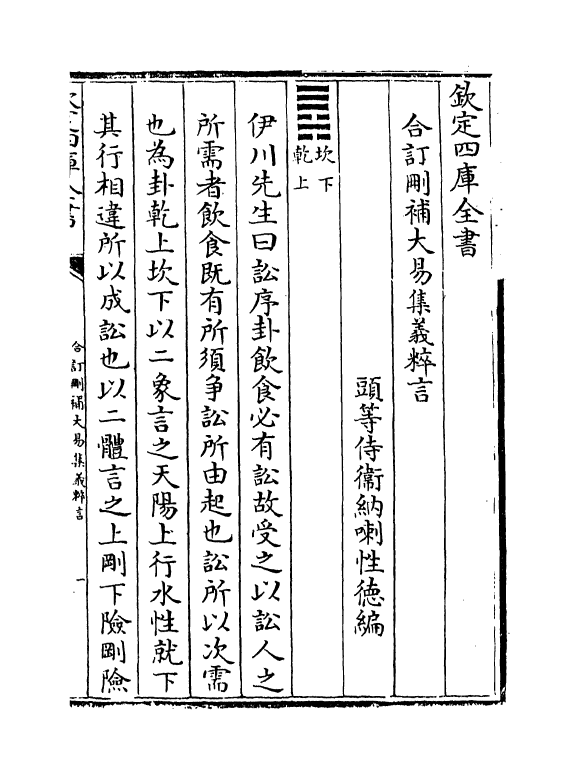 欽定四庫全書
合訂刪補大易集義粹言
頭等侍衞納喇性德編
坎下
乾上
伊川先生曰訟序卦飲食必有訟故受之以訟人之
所需者飲食既有所須爭訟所由起也訟所以次需
也為卦乾上坎下以二象言之天陽上行水性就下
其行相違所以成訟也以二體言之上剛下險剛險
合訂刪補大易集義粹言
一